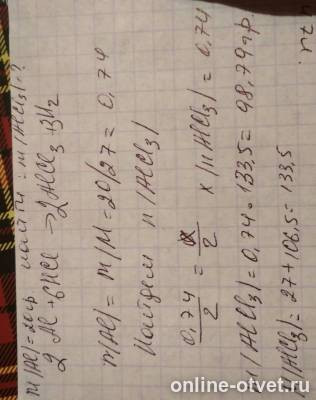 m(Al)=20гр найти: m(AlCl3)?
2Al+6HCl→2AlCl3+3H2
n(Al)=m/M=20/27=0,74
Найдем n(AlCl3)
0,74/2=x/2 x(n(AlCl3)=0,74
m(AlCl3)=0,74*133,5=98,79гр.
M(AlCl3)=27+106,5=133,5
online-otvet.ru